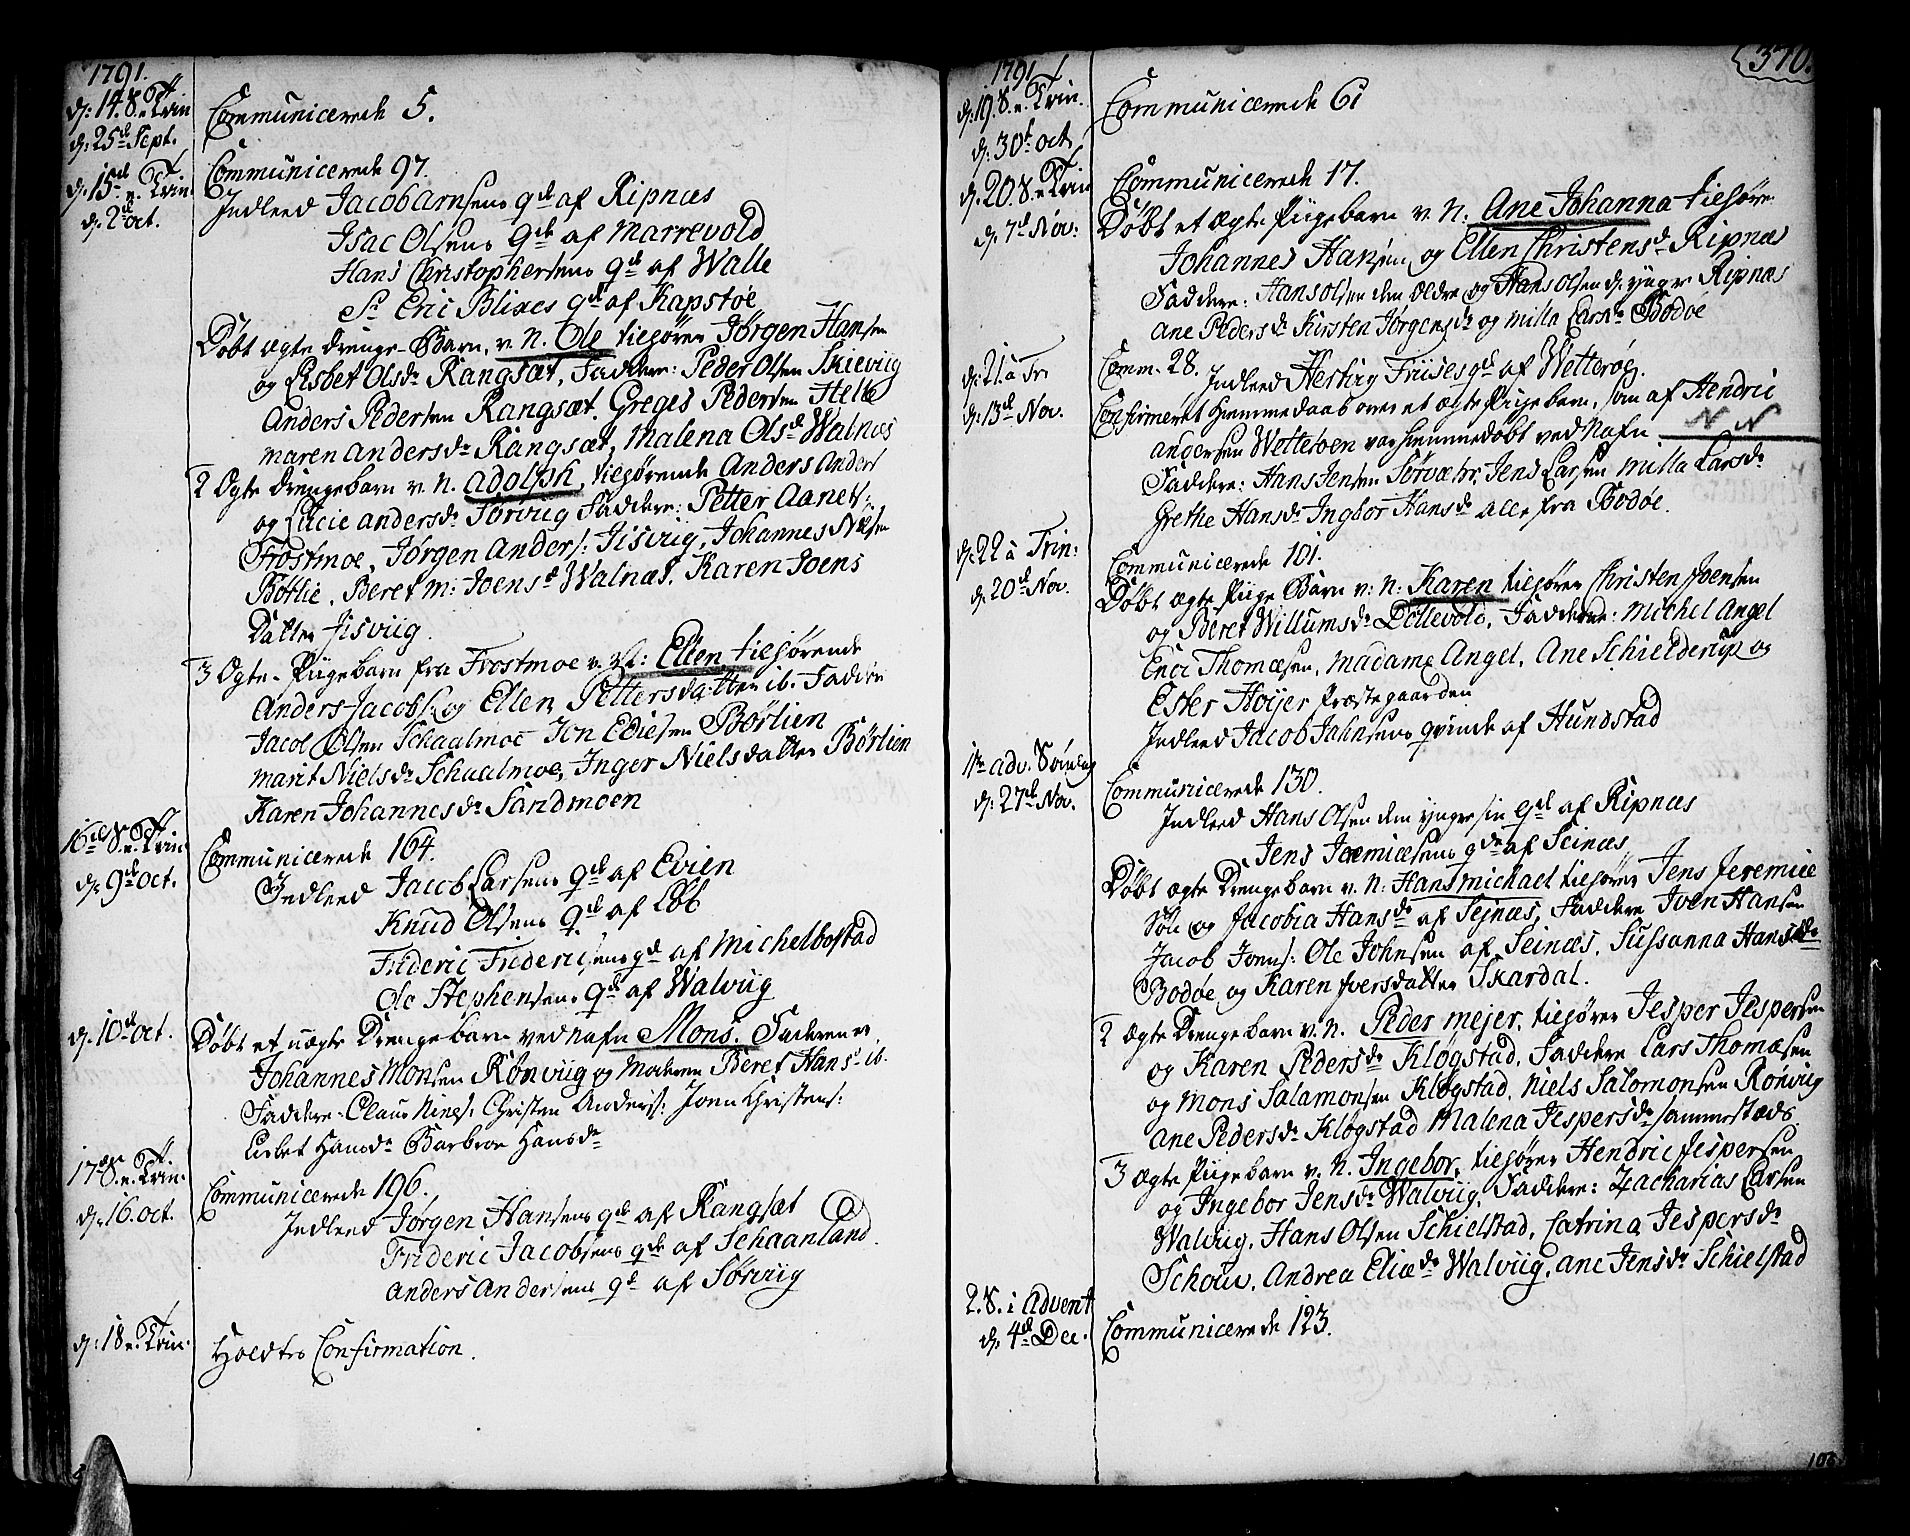 1791.
d: 14. S. e. Trin
d: 25de Sept.
Communicerede 5.
d: 15de e. Trin.
d: 2de oct.
Communicerede 97.
Indleed Jacob arnsens qde af Ripnæs
Isac Olsens qde af Marrevold
Hans Christophersens qde af Walle
Sr Eric Blixes qde af Kapstøe
Døbt ægte drenge-Barn, v. N. Ole tilhører Jørgen Hansen
og Lisbet Olsdr Rangsæt, Faddere: Peder Olsen Skievig
Anders Pedersen Rangsæt. Greges Pedersen
maren andersdr Rangsæt, Malena Olsdr Walnæs
2 Ægte drengebarn v. N. Adolph, tilhørende Anders Anders
og Lucie andersdr Sørvig Faddere: Petter Aanets:
Frostmoe, Jørgen Anders: Jisvig, Johannes
Bøtlie. Beret m: Joensd Walnæs. Karen Joens
Datter Jisviig.
3 Ægte-Piigebarn fra Frostmoe v. N: Ellen tilhørende
Anders Jacobs: og Ellen Pettersdatter ib. Faddere
Jacob Olsen Schaalmoe Jon Edisen Børlien
marit Nielsdr Schaalmoe, Inger Nielsdatter Børlien
Karen Johannesdr Sandmoen
16de S. e. Trin.
d: 9de oct.
Communicerede 164.
Indleed Jacob Larsens qde af Evien
Knud Olsens qde af Løb
Frideric Fridericsens qd af Michelbostad
Ole Stephensens qde af Walviig
d: 10de oct.
Døbt et uægte Drengebarn ved nafn Mons. Faderen er
Johannes Monsen Rønviig og Moderen Beret Hansd ib.
Faddere: Claus Niness: Christen Anders: Joen Christens:
Lisbet Hansdr Barbroe Hansdr
17de S. e. Trin.
d: 16. oct.
Communicerede 196.
Indleed Jørgen Hansens qde af Rangsæt
Frideric Jacobsens qde af Schaanland.
Anders Andersens qd af Sørviig
d: 18 e. Trin:
Holdtes Confirmation.
370.
1791
d: 19. S. e. Trin.
d: 30t oct
Communicerede 61
d. 20. S. e. Trin
d. 7d Nov:
Communicerede 17.
Døbt et ægte Piigebarn v. N. Ane Johanna tilhører
Johannes Hansen og Ellen Christensd Ripnæs
Faddere: Hans Olsen den Ældre og Hans Olsen d. yngre Ripnæs
Ane Pedersdr Kirsten Jørgensdr og Milla Larsdr Bodøe
d. 21. a Tr.
d. 13de Nov.
Comm. 28. Indleed Friises qd af Wetterøe.
Confirmeret hiemmedaab over et ægte Piigebarn, som af Hendric
Wetterøen var hiemmedøbt ved Nafn N N
Faddere: Hans Jensen Jens Larsen Milla Larsdr
Grethe Hansdr Ingbor Hansdr alle fra Bodøe.
d: 22 a Trin:
d. 20de Nov.
Communicerede 101.
Døbt ægte Piige Barn v: N: Karen tilhører Christen Joensen
og Beret Willumsdr Døllevold. Faddere: Michel Angel
Eric Thomesen, Madame Angel, Ane Schielderup og
Ester Hoyer Præstegaarden
Indleed Jacob Jahnsens qvinde af Hundstad
1te adv. Søndag
d: 27de Nov.
Communicerede 130.
Indleed Hans Olsen den yngre sin qde af Ripnæs
Jens Jeremiæsens qde af Seinæs
Døbt ægte Drengebarn v. N: Hans michael tilhører Jens Jeremiæ
Søn og Jacobia Hansdr af Sejnæs, Faddere Iven Hansen
Jacob Joens: Ole Johnsen af Seinæs. Sussanna Hansdr
Bodøe og Karen Iversdatter Skardal.
2 ægte Drengebarn v. N. Peder mejer. tilhører Jesper Jespersen
og Karen Pedersdr Kløgstad. Faddere Lars Thomæsen
og Mons Salamonsen Kløgstad, Niels Salomonsen Rønvig
Ane Pedersdr Kløgstad Malena Jespersdr sammestæds.
3 ægte Piigebarn v. N. Ingebor, tilhører Hendric Jespersen
og Ingebor Jensdr Walviig. Faddere: Zacharias Larsen
Walvig. Hans Olsen Schielstad, Catrina Jespersdr
Schow. Andrea Eliædr Walviig. ane Jensdr Schielstad
2. S. i Advent
d. 4de Dec.
Communicerede 123.